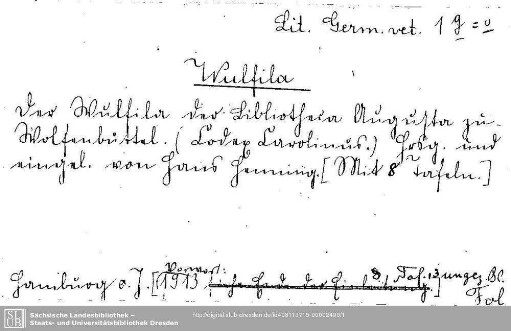 Lit. Germ. vet. 1 g = o
Wulfila
Der Wulfila der Bibliotheca Augusta zu
Wolfenbüttel. (Codex Carolinus.) Hrsg. und
eingel. von Hans Henning. [Mit 8 Tafeln.]
Vorwort:
Hamburg o. J. [1913. 8 Taf. 13 ungez. Bl.
Fol
Sächsische Landesbibliothek –
Staats- und Universitätsbibliothek Dresden